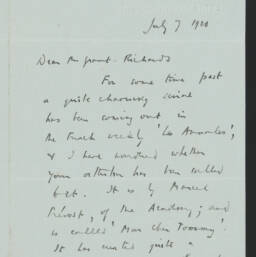 July 7 1920
Dear Mr Grant Richards
For some time past
a quite charming serial
has been coming out in
the French weekly 'Les Annales',
& I have wondered whether
your attention has been called
to it. It is by Marcel
Prévost, of the Academy; and
is called 'Mon Cher Tommy'.
It has created quite a